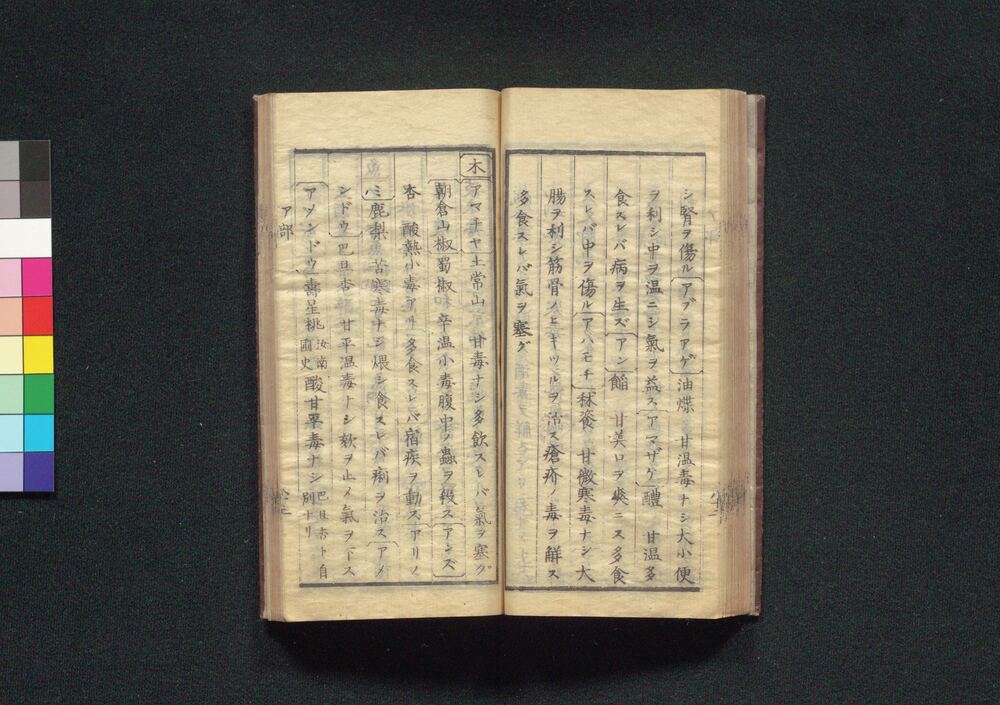 シ腎ヲ傷ル アブラアゲ 油煠 甘温毒ナシ大小便
ヲ利シ中ヲ温ニシ氣ヲ益ス アマザケ 醴 甘温多
食スレバ病ヲ生ズ アン 餡 甘美口ヲ爽ニス多食
スレバ中ヲ傷ル アハモチ 秫餈 甘微寒毒ナシ大
腸ヲ利シ筋骨ノヒキツルヲ治ス瘡疥ノ毒ヲ解ス
多食スレバ氣ヲ塞グ
木 アマチヤ 土常山 甘毒ナシ多飲スレバ氣ヲ塞グ
朝倉山椒 蜀椒 辛温小毒腹中ノ蟲ヲ殺ス アンズ
杏 酸熱小毒アリ多食スレバ宿疾ヲ動ス アリノ
ミ 鹿梨 苦寒毒ナシ煨シ食スレバ痢ヲ治ス アメ
ンドウ 巴旦杏 甘平温毒ナシ欬ヲ止メ氣ヲ下ス
アメンドウ 壽星桃 汝南圃史 酸甘平毒ナシ 巴旦杏ト自別ナリ
ア部